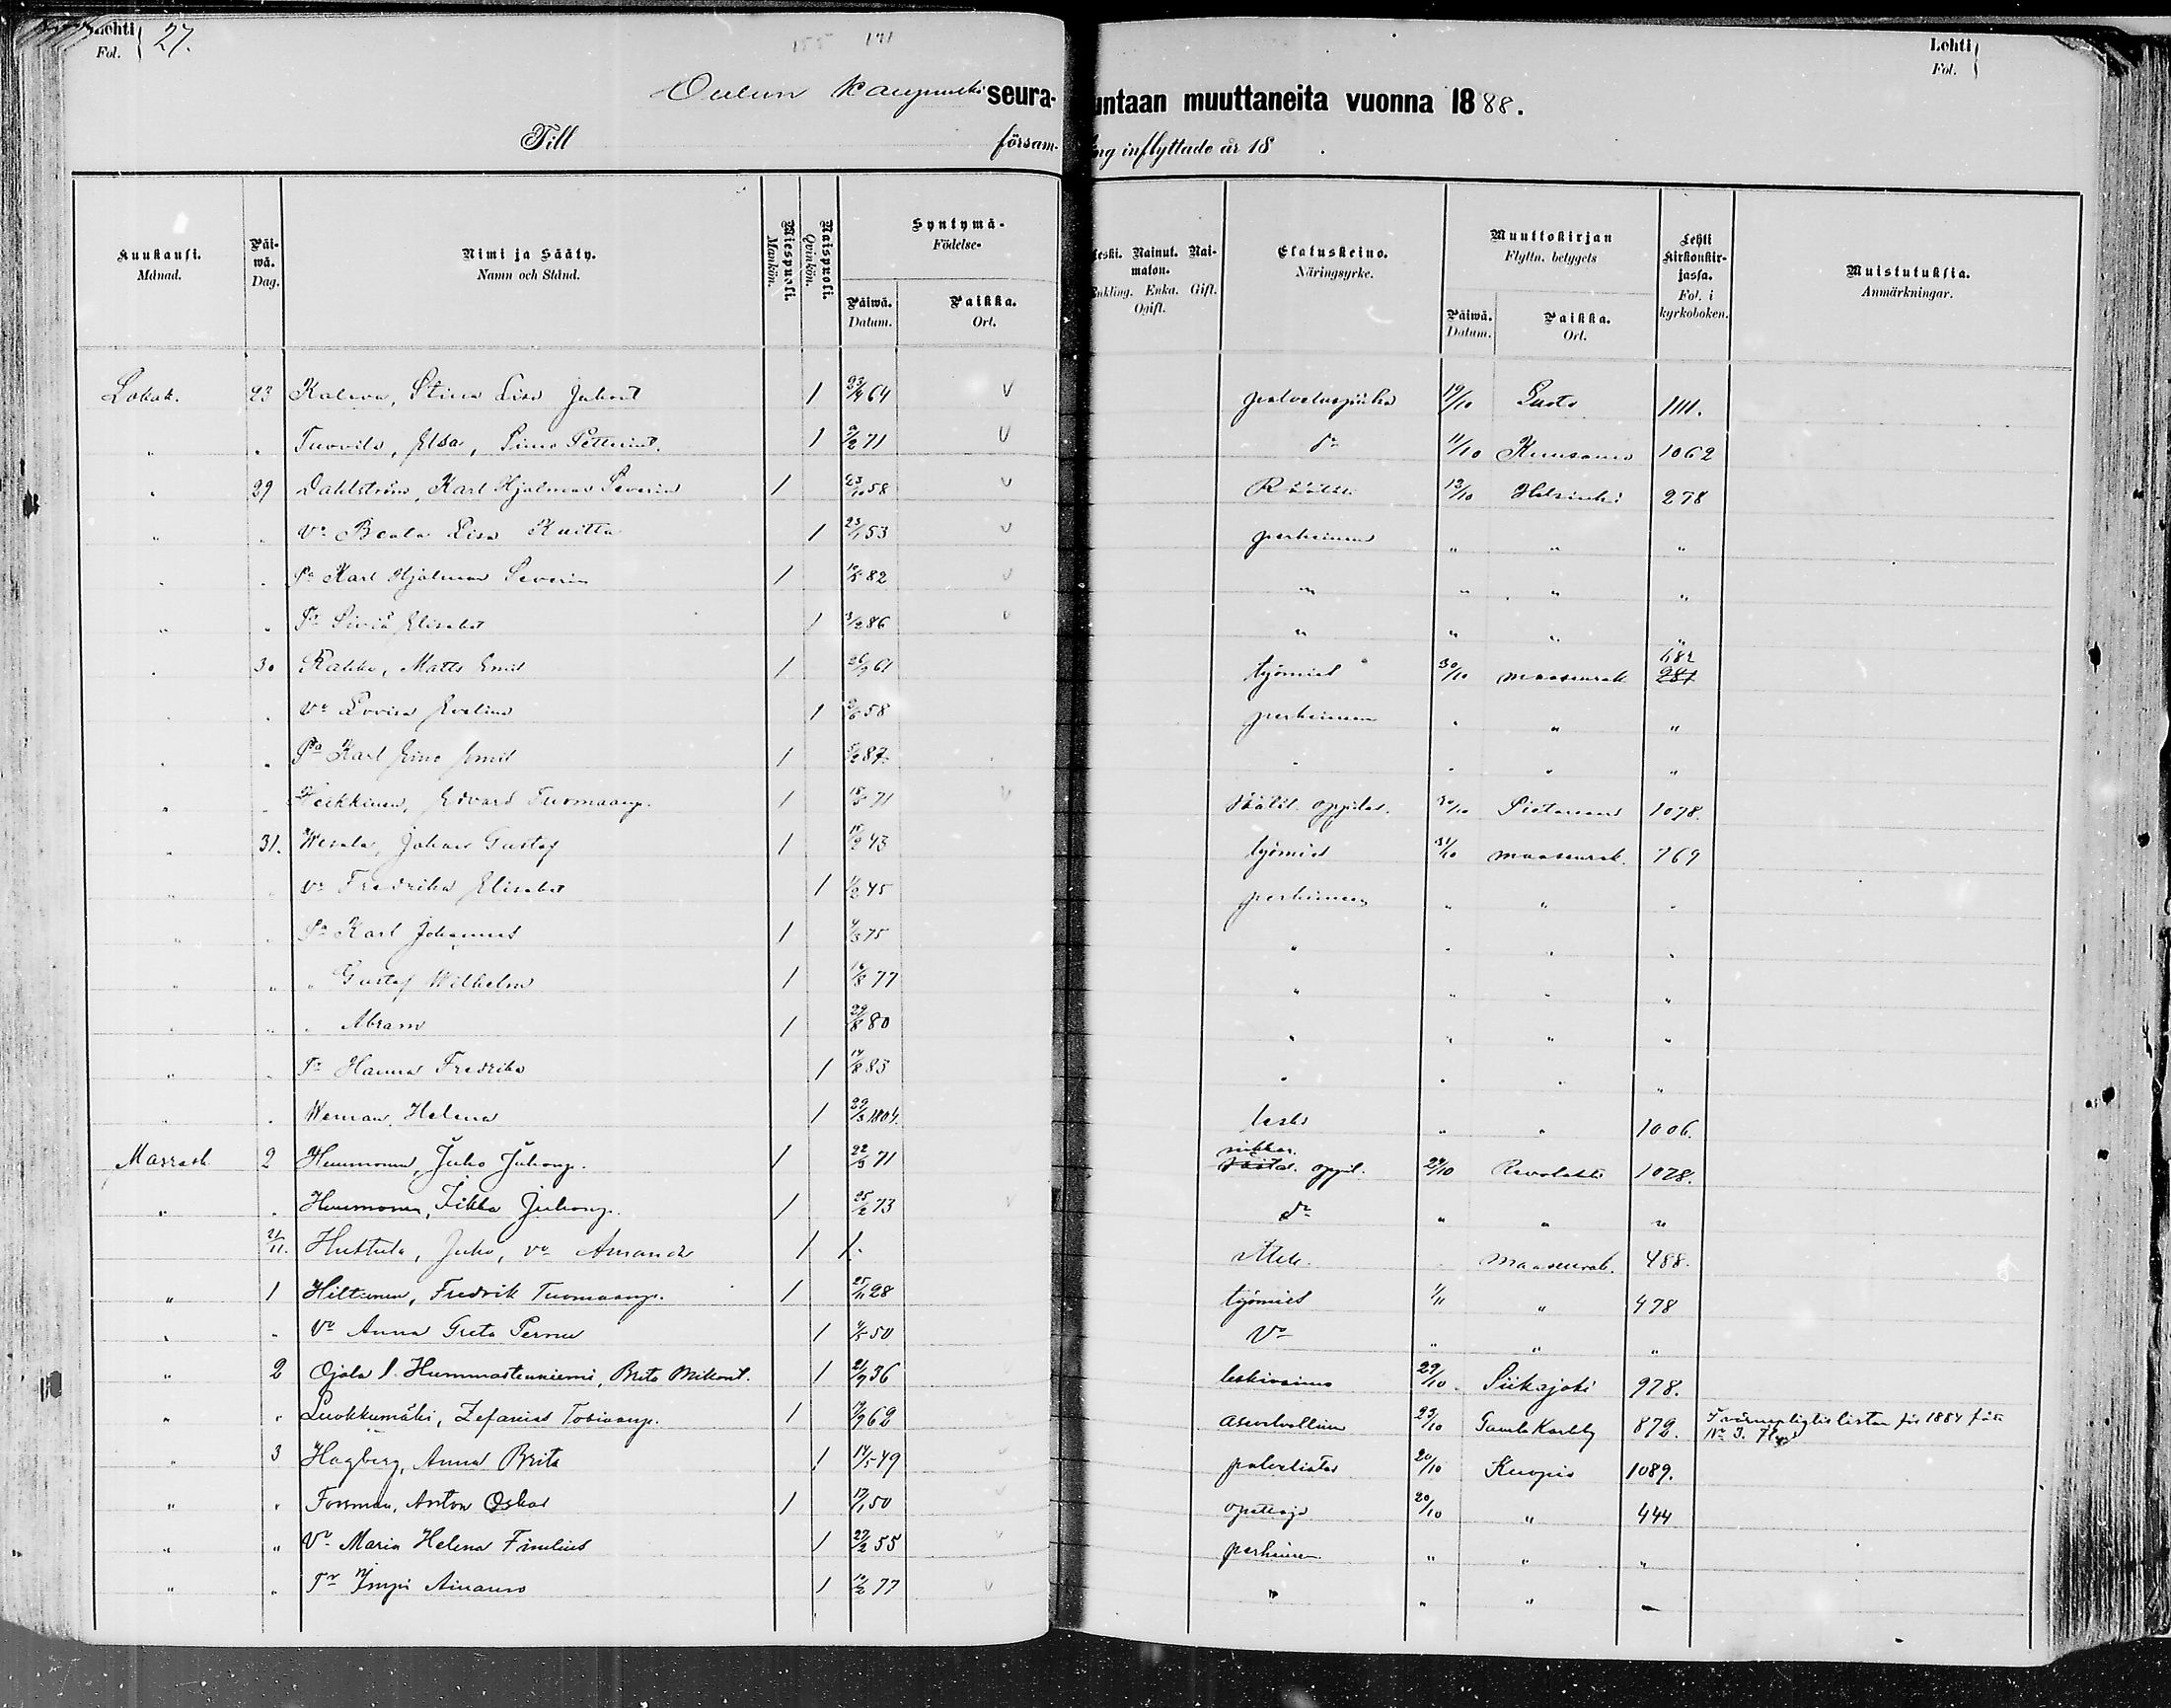 Lehti
Fol. 27.
155 171
Lehti
Fol.
Oulun kaupunki seura- untaan muuttaneita vuonna 1888.
Till försam- ng inflyttade år 18 .
Kuukausi. Månad.
Päiwä. Dag.
Nimi ja Sääty. Namn och Stånd.
Miespuoli. Mankön.
Naispuoli. Qvinkön.
Syntymä- Födelse-
Päiwä. Datum.
Paikka. Ort.
Leski. Nainut. Naimaton. Enkling. Enka. Gift. Ogift.
Elatuskeino. Näringsyrke.
Muuttokirjan Flyttn. betygets
Päiwä. Datum.
Paikka. Ort.
Lehti kirkonkirjassa. Fol. i kyrkoboken.
Muistutuksia. Anmärkningar.
Lokak. 23 Kaleva, Stina Lisa Juhont 1 64 palveluspiika 19/10 1111.
" " Tuovila, Elsa, Simo Petterint. 1 9/2 71 do 11/10 Kuusamo 1062
" 29 Dahlström, Karl Hjalmar Severin 1 23/10 58 Räätäli 13/10 Helsinki 278
" " Vo Beata Lisa Kuitto 1 23/1 53 perheineen " " "
" " Pa Karl Hjalmar Severin 1 82 " " " "
" " Tr Elisabet 1 3/2 86 " " " "
" 30 Rahko, Matts Emil 1 26/9 61 työmies 30/10 maaseurak. 482 281
" " Vo Lovisa Evelina 1 58 perheineen " " "
" " Pa Karl Eino Emil 1 87 " " " "
" " Heikkinen, Edvard Tuomaanp. 1 71 räätäl. oppilas. 30/10 1078.
" 31. Wesala, Johan Gustaf 1 43 työmies 31/10 maaseurak. 769
" " Vo Fredrika Elisabet 1 45 perheineen " " "
" " Pa Karl Johannes 1 75 " " " "
" " " Gustaf Wilhelm 1 16/8 77 " " " "
" " " Abram 1 29/8 80 " " " "
" " Tr Hanna Fredrika 1 14/8 85 " " " "
" " Helena 1 29/3 1804. leski " " 1006.
Marrask. 2 Huumonen, Juho Juhonp. 1 22/3 71 nikkar. oppil. 29/10 Revolahti 1078.
" " Huumonen, Iikka Juhonp. 1 25/2 73 do " " "
21/11. Huttula, Juho, vo Amanda 1 1. maaseurak. 488.
" 1 Hiltunen, Fredrik Tuomaanp. 1 25/11 28 työmies 1/11 " 478
" " Vo Anna Greta Pernu 1 4/5 50 Vo " " "
" 2 Ojala l. Hummastenniemi, Brita Mikont. 1 21/9 36 leskivaimo 29/10 Siikajoki 978.
" " Luokkumäki, Zefanias Tobiaanp. 1 62 asevelvollinen 23/10 Gamla Karleby 872. I värnepligtislistan för 1884 från No 3.
" 3 Hagberg, Anna Brita 1 14/5 49 20/10 Kuopio 1089.
" " Forsman, Anton Oskar 1 17/1 50 opettaja 20/10 " 444
" " Vo Maria Helena Finelius 1 27/2 55 perheineen " " "
" " Tr Impi Ainamo 1 77 " " " "